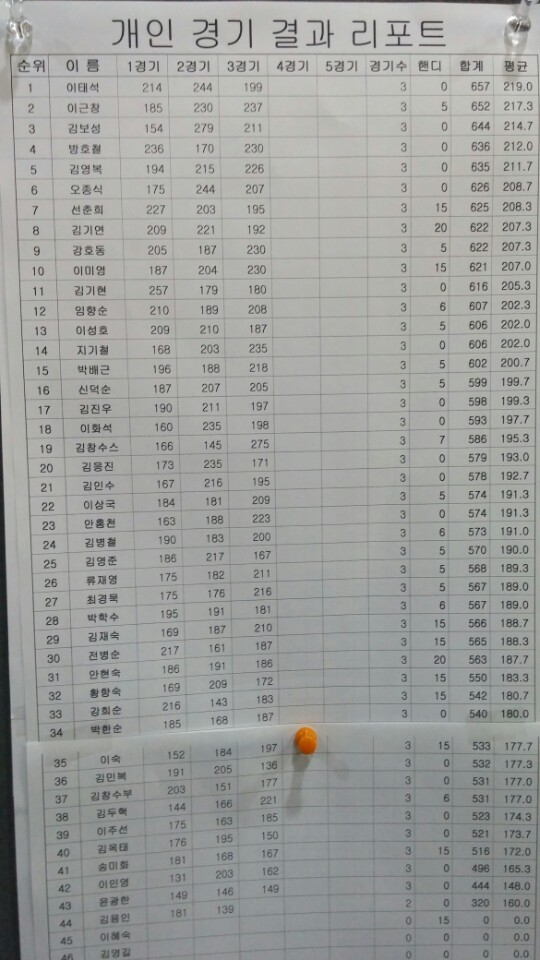 개인 경기 결과 리포트
순위 이 름 1경기 2경기 3경기 4경기 5경기 경기수 핸디 합계 평균
1 이태석 214 244 199 3 0 657 219.0
2 이근창 185 230 237 3 5 652 217.3
3 김보성 154 279 211 3 0 644 214.7
4 방호철 236 170 230 3 0 636 212.0
5 김영복 194 215 226 3 0 635 211.7
6 오종식 175 244 207 3 0 626 208.7
7 선춘희 227 203 195 3 15 625 208.3
8 김기연 209 221 192 3 20 622 207.3
9 강호동 205 187 230 3 5 622 207.3
10 이미영 187 204 230 3 15 621 207.0
11 김기현 257 179 180 3 0 616 205.3
12 임향순 210 189 208 3 6 607 202.3
13 이성호 209 210 187 3 5 606 202.0
14 지기철 168 203 235 3 0 606 202.0
15 박배근 196 188 218 3 5 602 200.7
16 신덕순 187 207 205 3 5 599 199.7
17 김진우 190 211 197 3 0 598 199.3
18 이화석 160 235 198 3 0 593 197.7
19 김창수스 166 145 275 3 7 586 195.3
20 김응진 173 235 171 3 0 579 193.0
21 김민수 167 216 195 3 0 578 192.7
22 이상국 184 181 209 3 5 574 191.3
23 안홍천 163 188 223 3 0 574 191.3
24 김병철 190 183 200 3 6 573 191.0
25 김영준 186 217 167 3 5 570 190.0
26 류재영 175 182 211 3 5 568 189.3
27 최경묵 175 176 216 3 5 567 189.0
28 박학수 195 191 181 3 6 567 189.0
29 김재숙 169 187 210 3 15 566 188.7
30 전병순 217 161 187 3 15 565 188.3
31 안현숙 186 191 186 3 20 563 187.7
32 황향숙 169 209 172 3 15 550 183.3
33 강희순 216 143 183 3 15 542 180.7
34 박한순 185 168 187 3 0 540 180.0
35 이숙 152 184 197 3 15 533 177.7
36 김민복 191 205 136 3 0 532 177.3
37 김창수부 203 151 177 3 0 531 177.0
38 김두혁 144 166 221 3 6 531 177.0
39 이주선 175 163 185 3 0 523 174.3
40 김옥태 176 195 150 3 0 521 173.7
41 송미화 181 168 167 3 15 516 172.0
42 이민영 131 203 162 3 0 496 165.3
43 윤광한 149 146 149 3 0 444 148.0
44 김용인 181 139 2 0 320 160.0
45 이혜숙 0 15 0 0.0
46 김영길 0 0 0 0.0